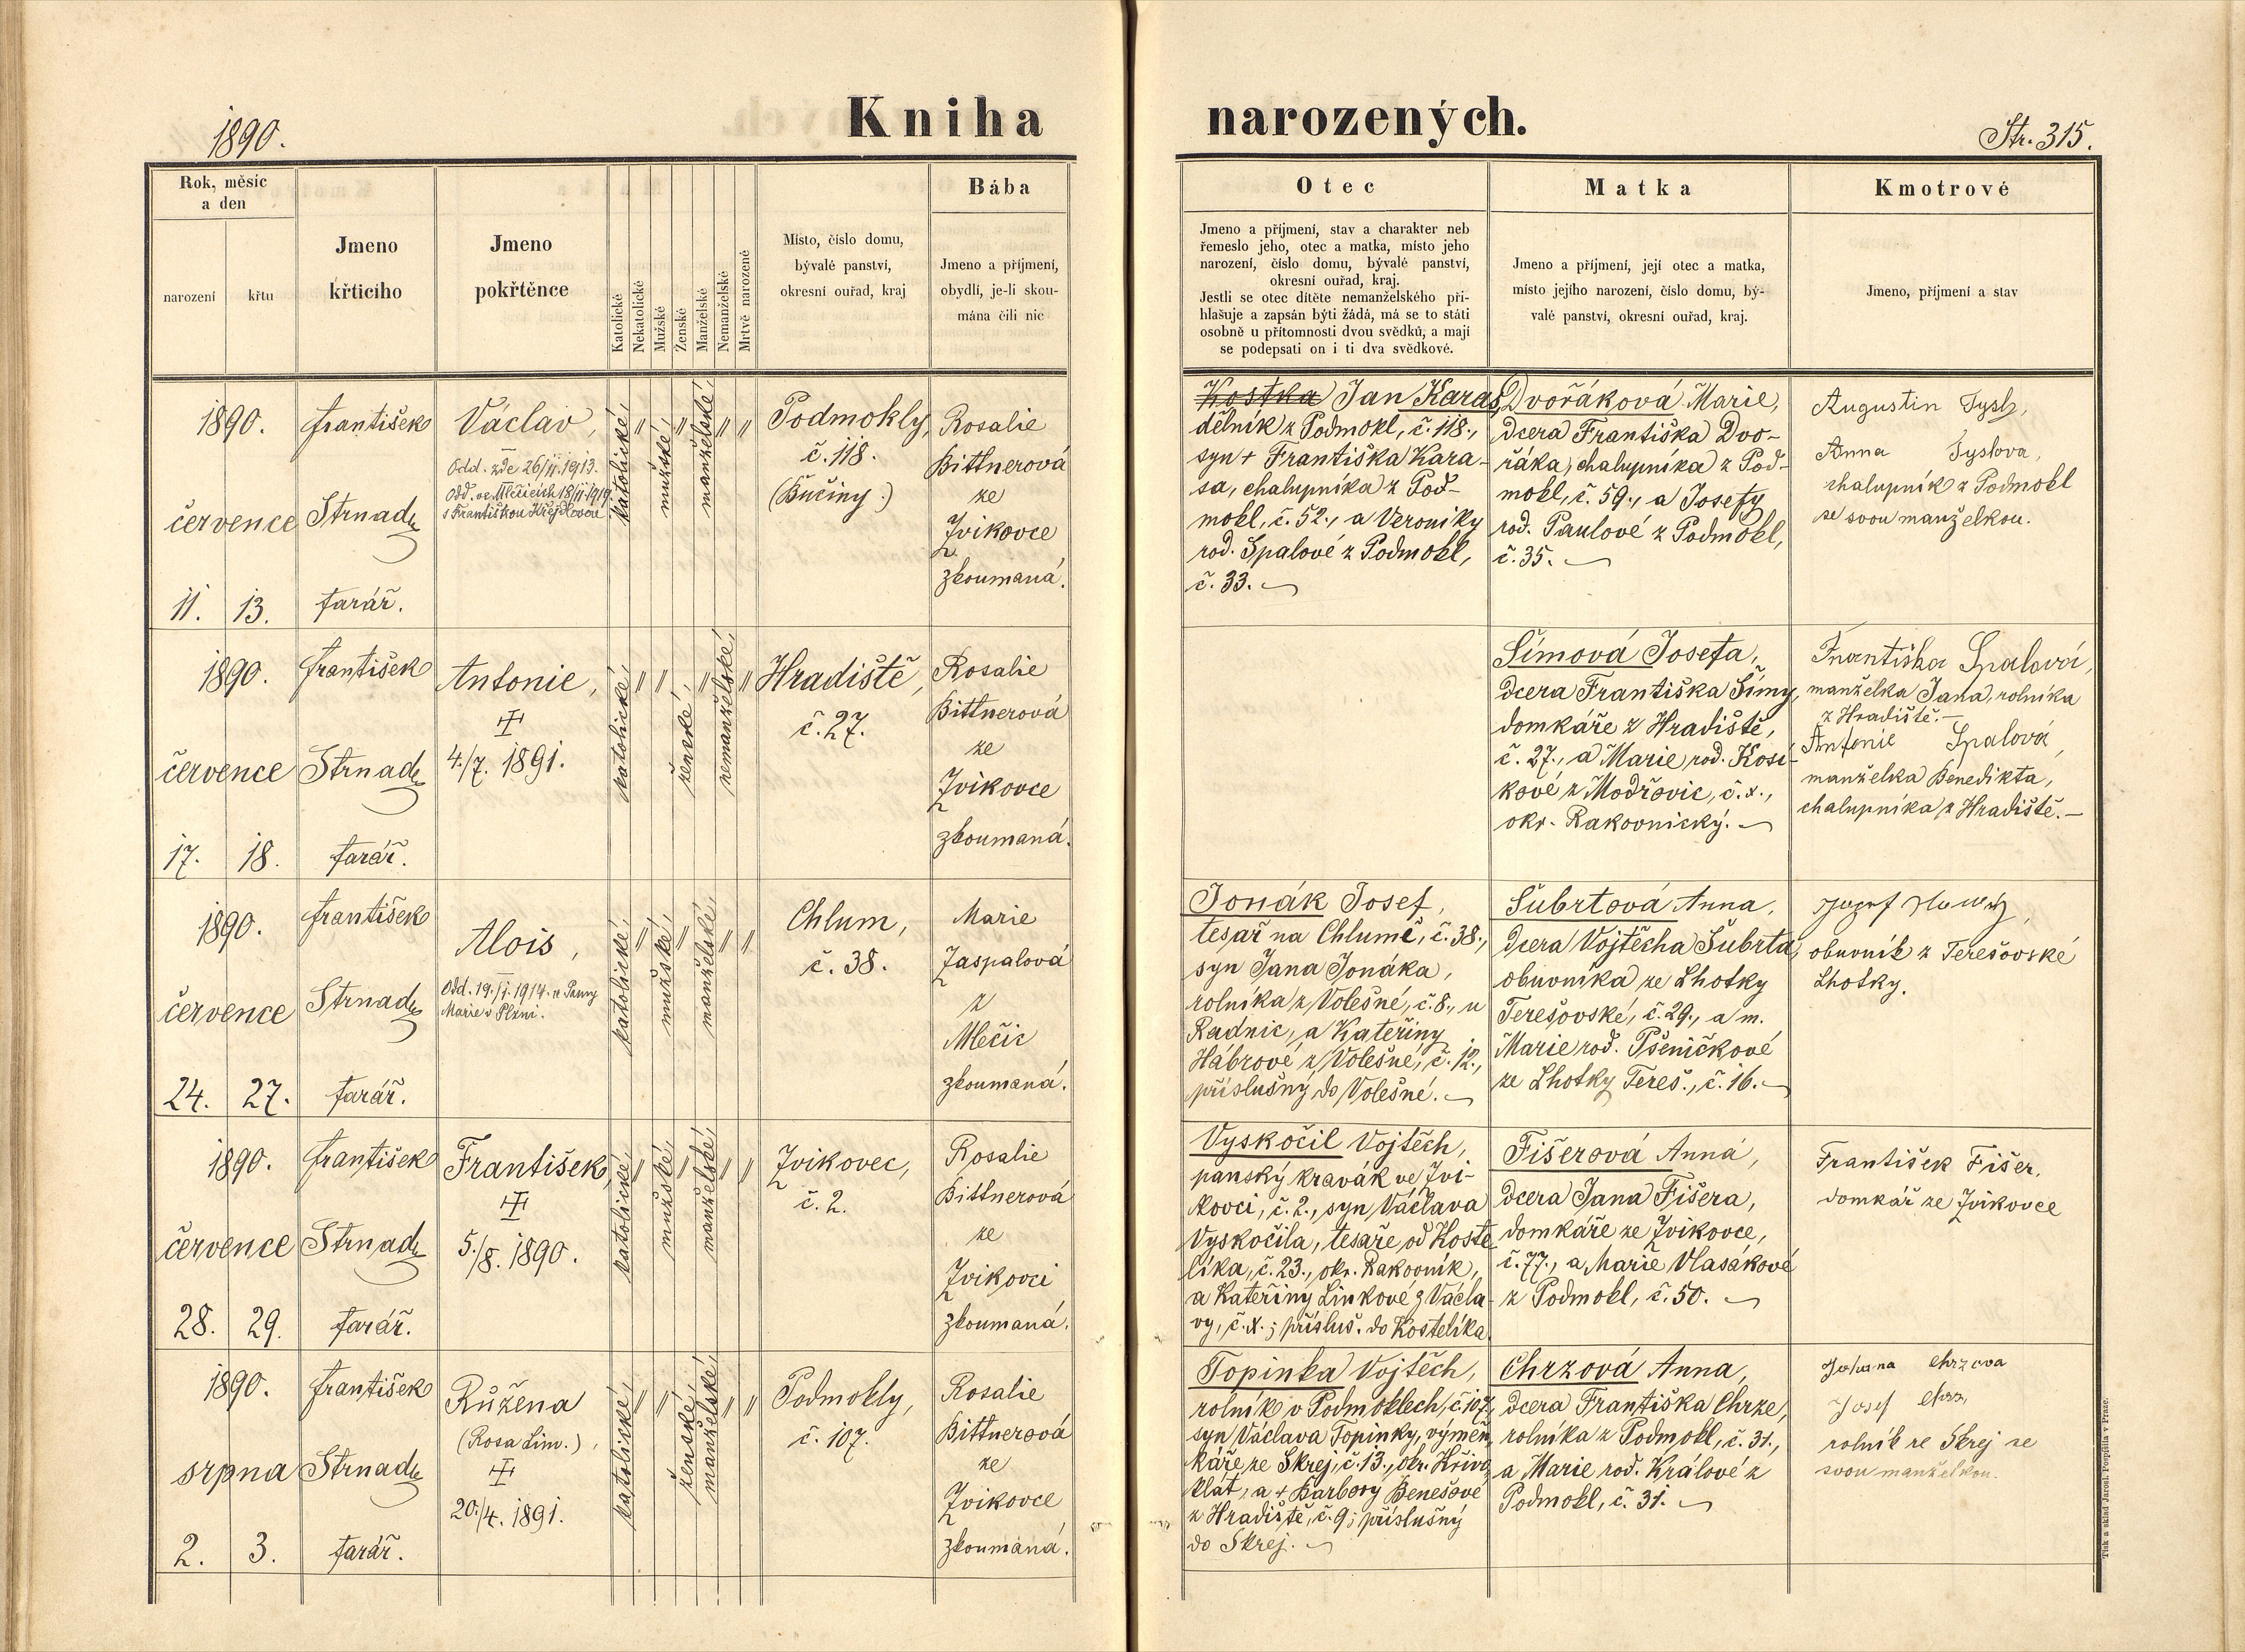 1890.
Kniha narozených.
Str. 315.
Rok, měsíc
a den
narození
křtu
Jmeno
křticího
Jmeno
pokřtěnce
Katolické
Nekatolické
Mužské
Ženské
Manželské
Nemanželské
Mrtvě narozené
Místo, číslo domu,
bývalé panství,
okresní ouřad, kraj
Bába
Jmeno a příjmení,
obydlí, je-li skou-
mána čili nic
Otec
Jmeno a příjmení, stav a charakter neb
řemeslo jeho, otec a matka, místo jeho
narození, číslo domu, bývalé panství,
okresní ouřad, kraj.
Jestli se otec dítěte nemanželského při-
hlašuje a zapsán býti žádá, má se to státi
osobně u přítomnosti dvou svědků, a mají
se podepsati on i ti dva svědkové.
Matka
Jmeno a příjmení, její otec a matka,
místo jejího narození, číslo domu, bý-
valé panství, okresní ouřad, kraj.
Kmotrové
Jmeno, příjmení a stav
1890.
července
11. 13.
František
Strnad
farář.
Václav,
Odd. zde 26/II. 1913.
Odd. ve Mlečicích 18/II. 1919
s Františkou Křejdlovou
katolické,
〃
mužské,
〃
manželské,
〃
〃
Podmokly,
č. 118.
(Bučiny.)
Rosalie
Bittnerová
ze
Zvíkovce
zkoumaná.
Kostka Jan Karas,
dělník z Podmokl, č. 118.,
syn + Františka Kara-
sa, chalupníka z Pod-
mokl, č. 52., a Veroniky
rod. Spalové z Podmokl,
č. 33.
Dvořáková Marie,
dcera Františka Dvo-
řáka, chalupníka z Pod-
mokl, č. 59., a Josefy
rod. Paulové z Podmokl,
č. 35.
Augustin Sysl,
Anna Syslova,
chalupník z Podmokl
se svou manželkou.
1890.
července
17. 18.
František
Strnad
farář.
Antonie,
4./7. 1891.
katolické,
〃
〃
ženské,
〃
nemanželské,
〃
Hradiště,
č. 27.
Rosalie
Bittnerová
ze
Zvíkovce
zkoumaná.
Šímová Josefa,
dcera Františka Šímy,
domkáře z Hradiště,
č. 27., a Marie rod. Kosí-
kové z Modřovic, č. x.,
okr. Rakovnický.
Františka Spalová,
manželka Jana, rolníka
z Hradiště.—
Antonie Spalová,
manželka Benedikta,
chalupníka z Hradiště.—
1890.
července
24. 27.
František
Strnad
farář.
Alois,
Odd. 19./I. 1914. u Panny
Marie v Plzni.
katolické,
〃
mužské,
〃
manželské,
〃
〃
Chlum,
č. 38.
Marie
Zaspalová
z
Mlečic
zkoumaná.
Jonák Josef,
tesař na Chlumě, č. 38.,
syn Jana Jonáka,
rolníka z Volešné, č. 8., u
Radnic, a Kateřiny
Hábrové z Volešné, č. 12.,
příslušný do Volešné.
Šubrtová Anna,
dcera Vojtěcha Šubrta,
obuvníka ze Lhotky
Terešovské, č. 29., a m.
Marie rod. Pšeničkové
ze Lhotky Tereš., č. 16.
Jozef
obuvník z Terešovské
Lhotky.
1890.
července
28. 29.
František
Strnad
farář.
František,
5./8. 1890.
katolické,
〃
mužské,
〃
manželské,
〃
〃
Zvíkovec,
č. 2.
Rosalie
Bittnerová
ze
Zvíkovci
zkoumaná.
Vyskočil Vojtěch,
panský kravák ve Zví-
kovci, č. 2., syn Václava
Vyskočila, tesaře, od Koste-
líka, č. 23., okr. Rakovník,
a Kateřiny Linkové z Václa-
vy, č. x.; přísluš. do Kostelíka.
Fišerová Anna,
dcera Jana Fišera,
domkáře ze Zvíkovce,
č. 77., a Marie Vlasákové
z Podmokl, č. 50.
František Fišer,
domkář ze Zvíkovce
1890.
srpna
2. 3.
František
Strnad
farář.
Růžena
(Rosa Lim.),
20./4. 1891.
katolické,
〃
〃
ženské,
manželské,
〃
〃
Podmokly,
č. 107.
Rosalie
Bittnerová
ze
Zvíkovce
zkoumaná.
Topinka Vojtěch,
rolník v Podmoklech, č. 107,
syn Václava Topinky, výměn-
káře ze Skrej, č. 13., okr. Křivo-
klát, a + Barbory Benešové
z Hradiště, č. 9; příslušný
do Skrej.
Chrzová Anna,
dcera Františka Chrze,
rolníka z Podmokl, č. 31.,
a Marie rod. Králové z
Podmokl, č. 31.
Johana Chrzova
Josef Chrz,
rolník ze Skrej se
svou manželkou.
Tisk a sklad Jarosl. Pospíšila v Praze.